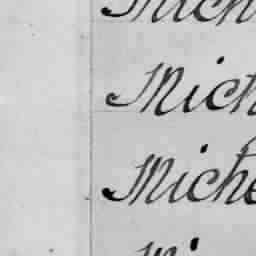 Mich
Mich
Miche
Mi